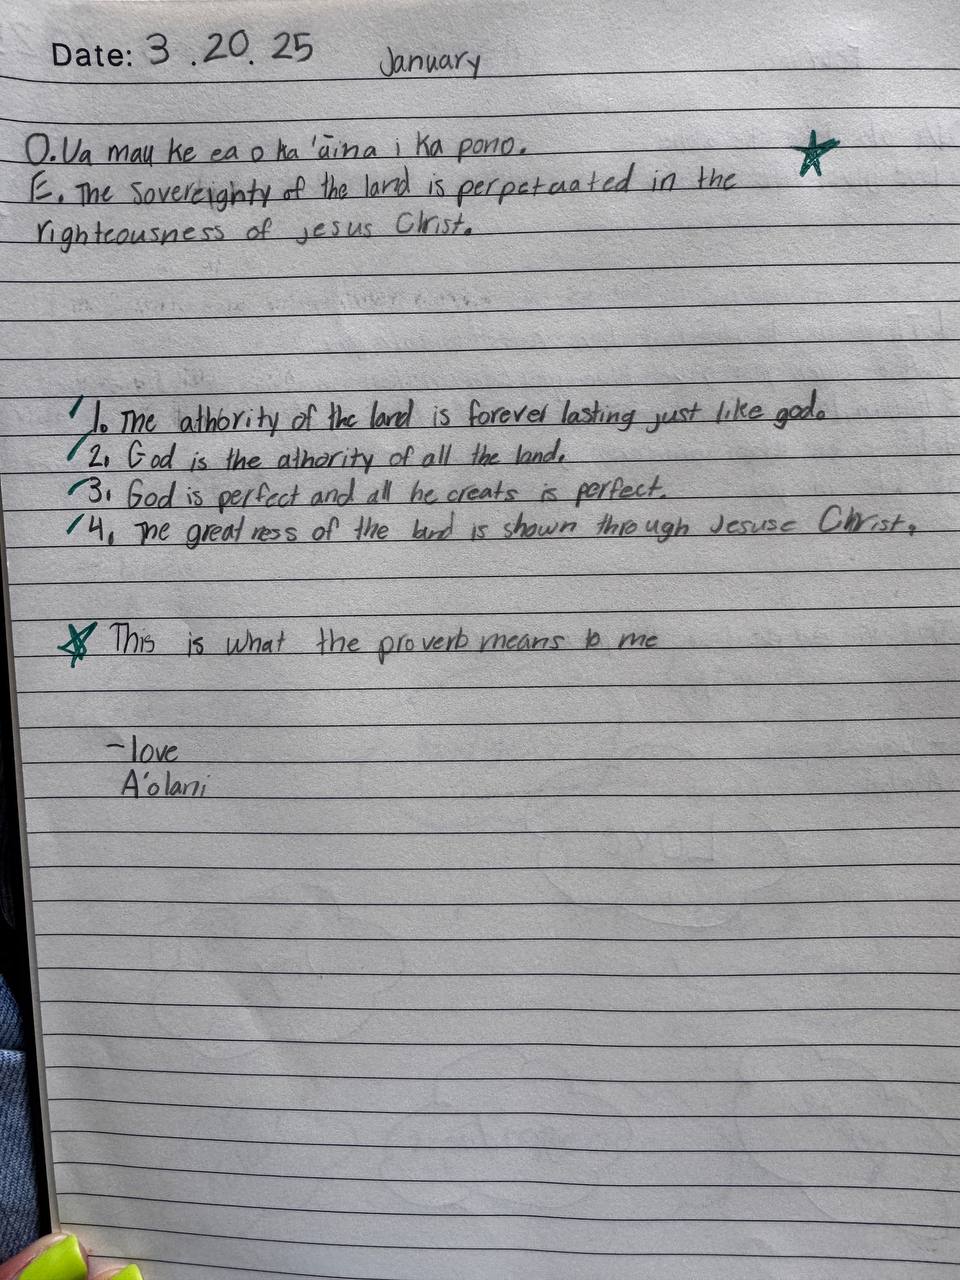 Date: 3.20.25 January
O. Ua mau ke ea o ka 'āina i ka pono.
E. The Sovereighty of the land is perpetuated in the
righteousness of jesus Christ.
1. The athority of the land is forever lasting just like god.
2. God is the athority of all the land.
3. God is perfect and all he creats is perfect.
4. The greatness of the land is shown through Jesuse Christ.
This is what the proverb means to me
-love
A'olani